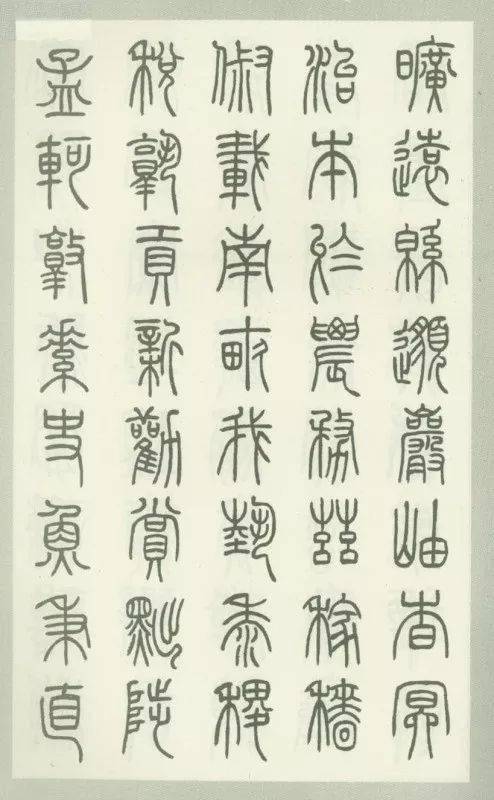 曠遠緜邈巖岫杳冥
治本於農務茲稼穡
俶載南畝我藝黍稷
稅孰貢新勸賞黜陟
孟軻敦素史魚秉直